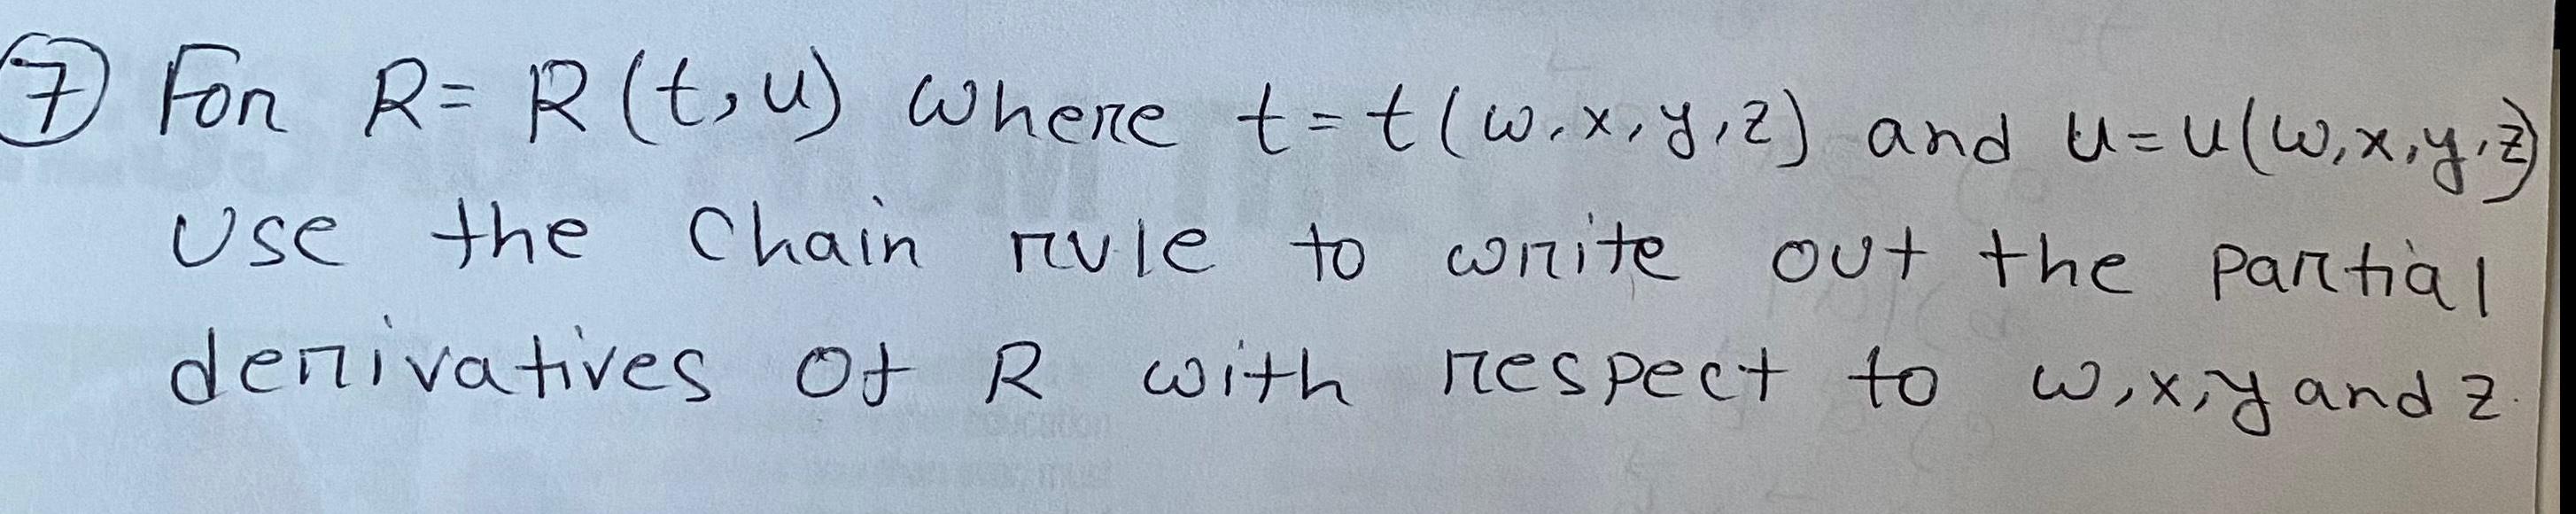 7 For R = R(t,u) where t = t(w,x,y,z) and u = u(w,x,y,z)
Use the Chain rule to write out the partial
derivatives of R with respect to w,x,y and z.